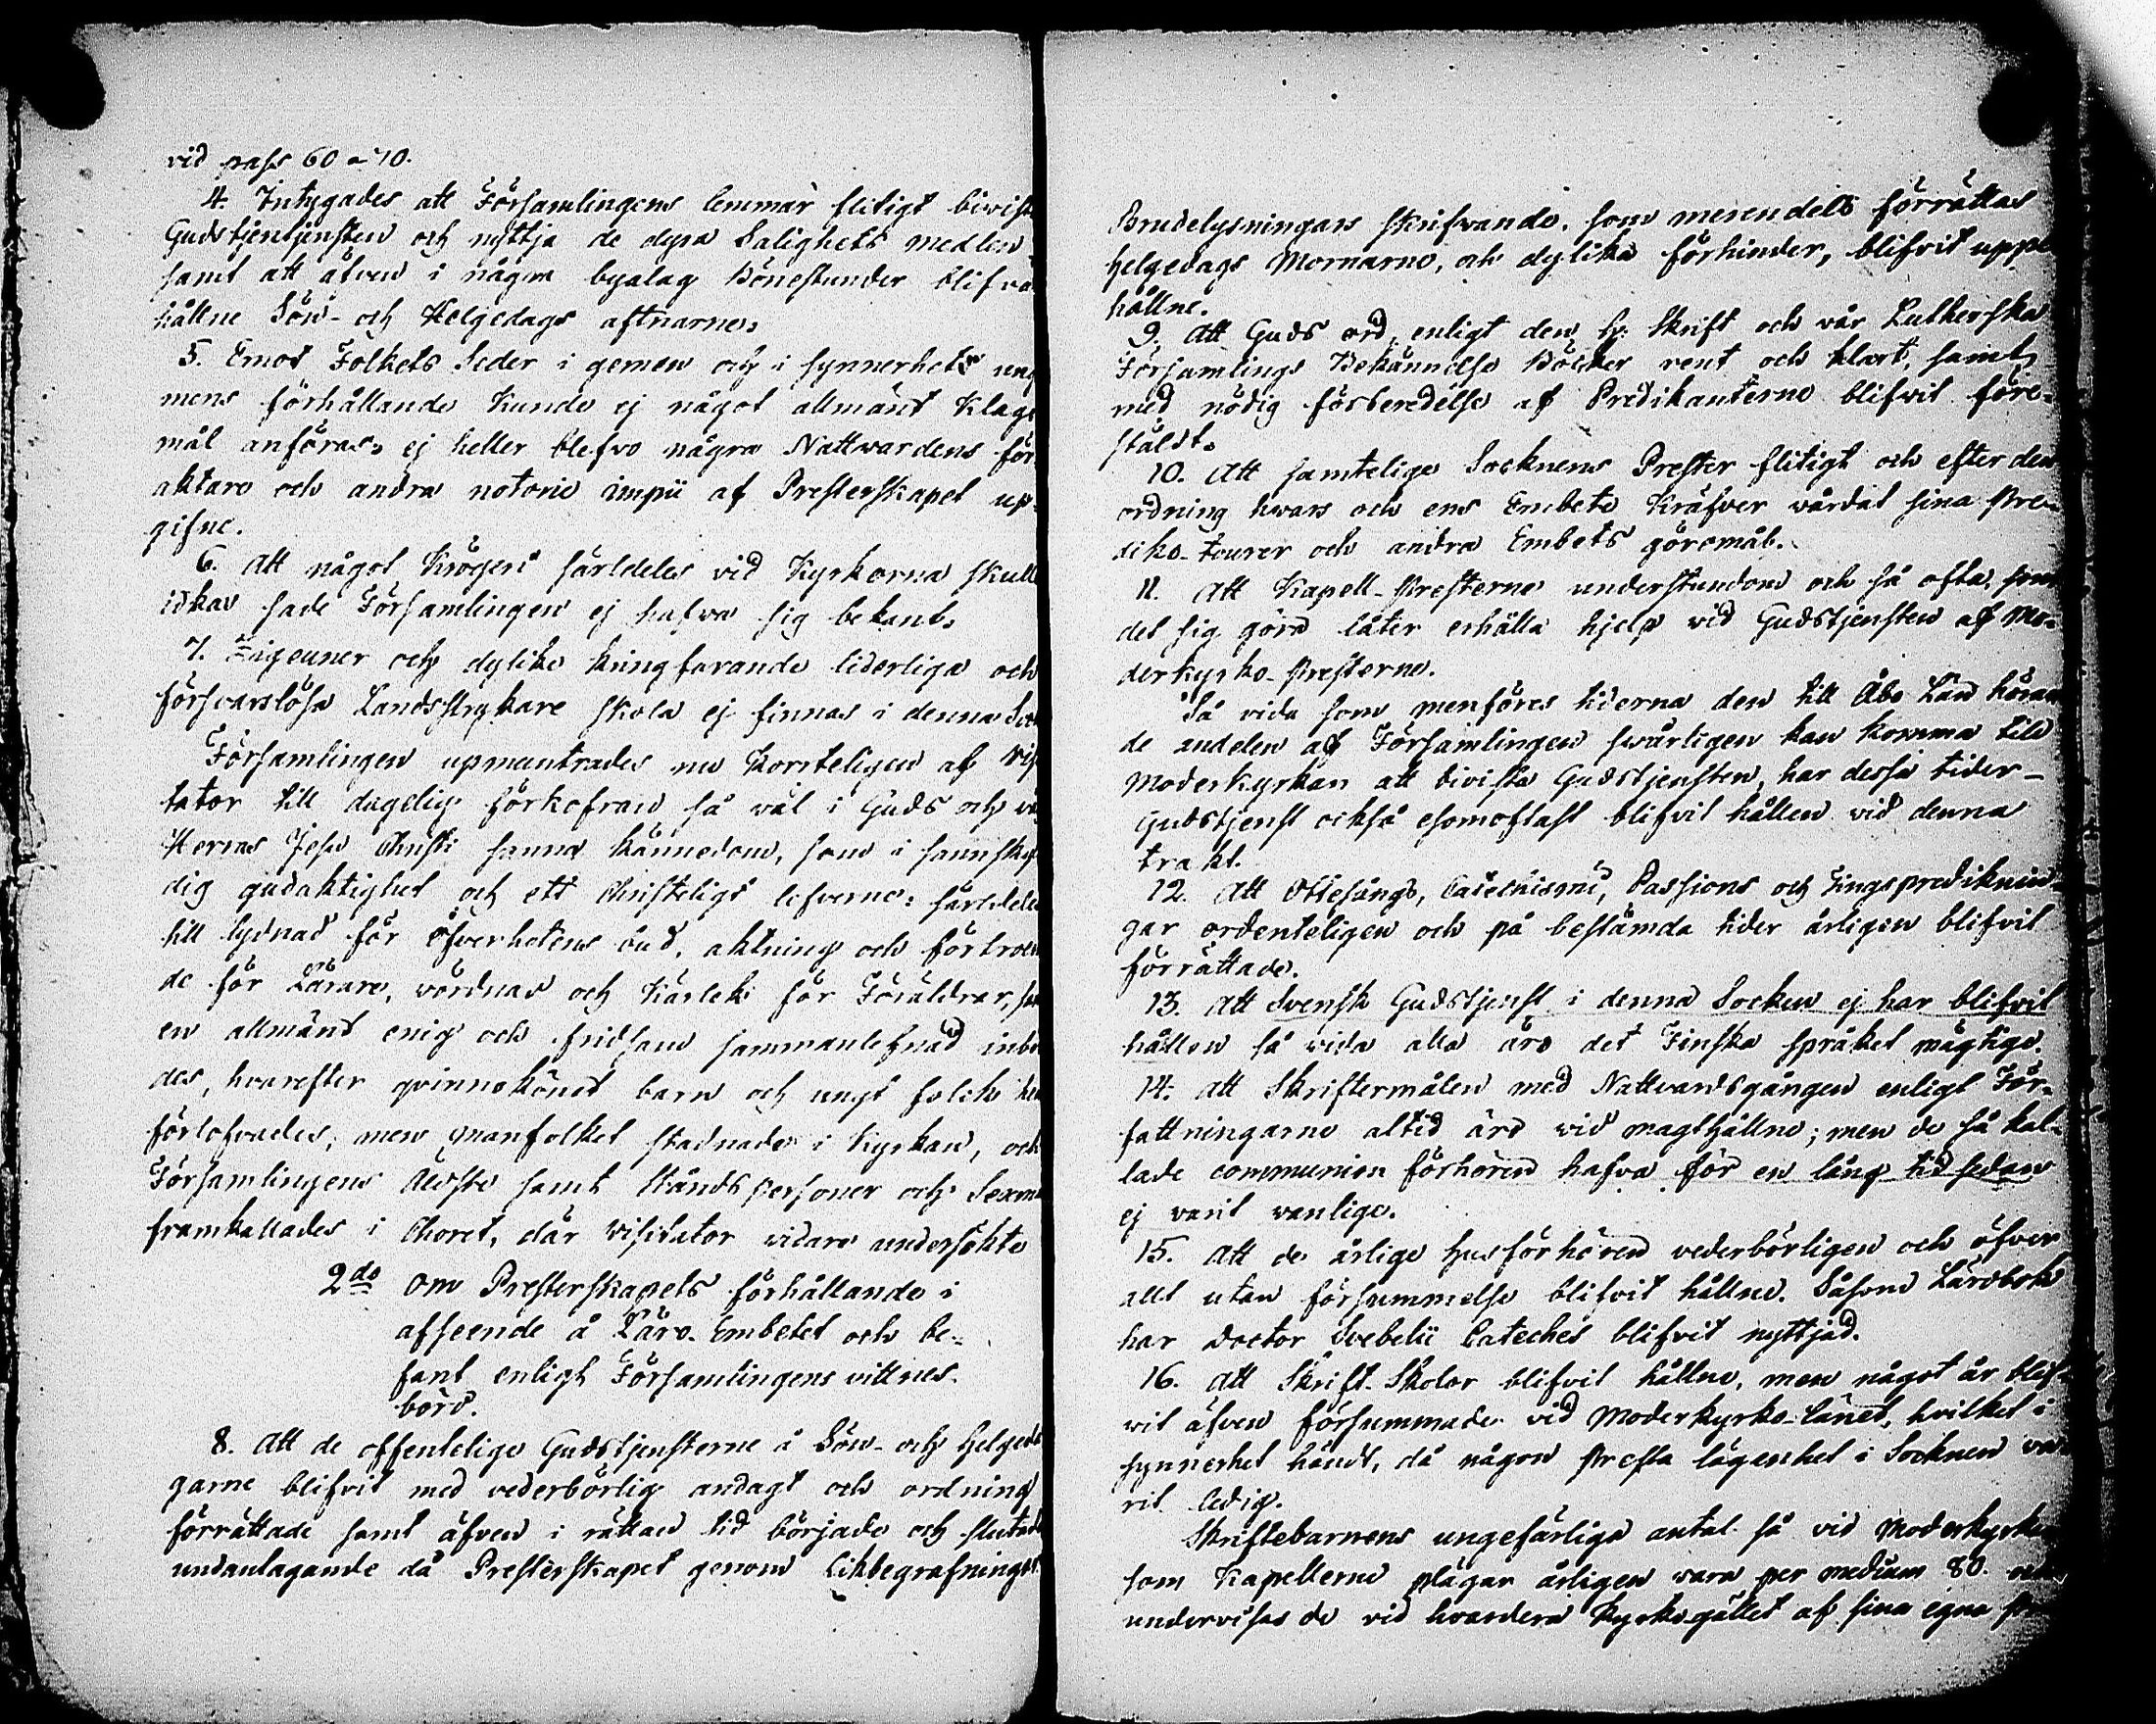 vid pass 60 a 70.
4. Intygades att Församlingens lemmar flitigt bivist
Gudstjentjensten och nyttja de dyra Salighets medlen,
samt att äfven i några byalag Bönestunder blifva
hållne Sön- och Helgedags aftnarne.
5. Emot Folkets Seder i gemen och i synnerhet ung
mens förhållande kunde ej något allmänt Klago
mål anföras, ej heller blefvo några Nattwardens för
aktare och andra notorie impii af Presterskapet up-
gifne.
6. Att något Krögeri särldeles vid Kyrkorna skull
idkas sade Församlingen ej hafva sig bekant.
7. Zigeuner och dylike kringfarande liderliga och
försvarslösa Landsstrykare skola ej finnas i denna Sock
Församlingen upmuntrades nu korrteligen af Visi
tator till dagelig förkofran så väl i Guds och vår
Herras Jesu Christi sanna kännedom, som i sannsky
dig gudaktighet och ett Christeligt lefverne, särldeles
till lydnad för öfverhetens bud, aktning och förtroen
de för Lärare, wördnad och Kärlek för Föräldrar, sam
en allmänt enig och fridsam sammanlefnad inbör
des, hvarefter qvinnokönet barn och ungt folck hem
förlofvades, men manfolket stadnade i Kyrkan, och
Församlingens Äldste samt Ståndspersoner och Sexmän
framkallades i Choret, där Visitator vidare undersökte
2do om Presterskapets förhållande i
afseende å Läro-Embetet och be-
fant enligt Församlingens vittnes-
börd.
8. Att de offentelige Gudstjensterne å Sön- och Helgeda
garne blifvit med vederbörlig andagt och ordning
förrättade samt äfven i rättan tid började och slutade
undantagande då Presterskapet genom Likbegrafningar
Brudelysningars skrifvande, som merendels förrättas
helgedags Mornarne, och dylika förhinder, blifvit uppe
hållne.
9. Att Guds ord, enligt den h. Skrift och vår Lutherska
Församlings Bekännelse Böcker rent och klart, samt
med nödig förberedelse af Predikanterne blifvit före-
stäldt.
10. Att samtelige Socknens Prester flitigt och efter den
ordning hwars och ens Embete kräfver vårdat sina Pre-
diko-tourer och andra Embets göromål.
11. Att Kapell-Presterne understundom och så ofta som
det sig göra låter erhålla hjelp vid Gudstjensten af Mo-
derkyrko-Presterne.
Så vida som menföres tiderna den till Åbo Län höran
de andelen af Församlingen swårligen kan komma till
Moderkyrkan att bivista Gudstjensten, har dessa tider
Gudstjenst också esomoftast blifvit hållen vid denna
trakt.
12. Att Ottesångs, Catechismi, Passions och Tingsprediknin-
gar ordenteligen och på bestämda tider årligen blifvit
förrättade.
13. Att Svensk Gudstjenst i denna Socken ej har blifvit
hållen så vida alla äro det Finska språket mägtige.
14. Att Skriftermålen med Nattvardsgången enligt För-
fattningarne altid äro vid magt hållne; men de så kal-
lade communion förhören hafva för en lång tid sedan
ej varit vanlige.
15. Att de årlige husförhören vederbörligen och öfver
allt utan försummelse blifvit hållne. Såsom Lärobok
har Doctor Svebelii Cateches blifvit nyttjad.
16. Att Skrift-Skolor blifvit hållne, men något år blif-
vit äfven försummade vid Moderkyrko-länet, hvilket i
synnerhet händt, då någon Presta lägenhet i Socknen va-
rit ledig.
Skriftebarnens ungefärliga antal så vid Moderkyrkan
som Kapellerne plägar årligen vara per medium 80. och
undervises de vid hvardera Kyrkogället af sina egna Pre